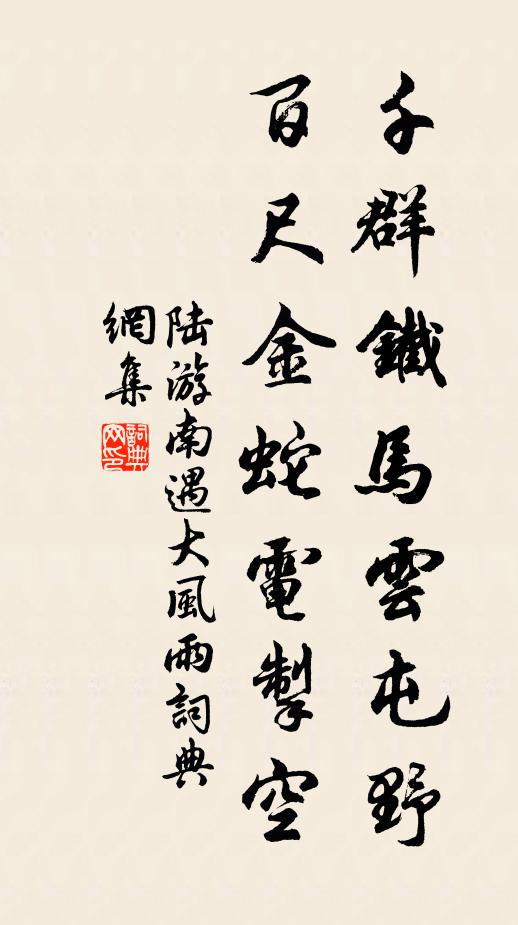 千群鐵馬雲屯野
百尺金蛇電掣空
陆游南遇大風雨詞典
網集
詞典
网印